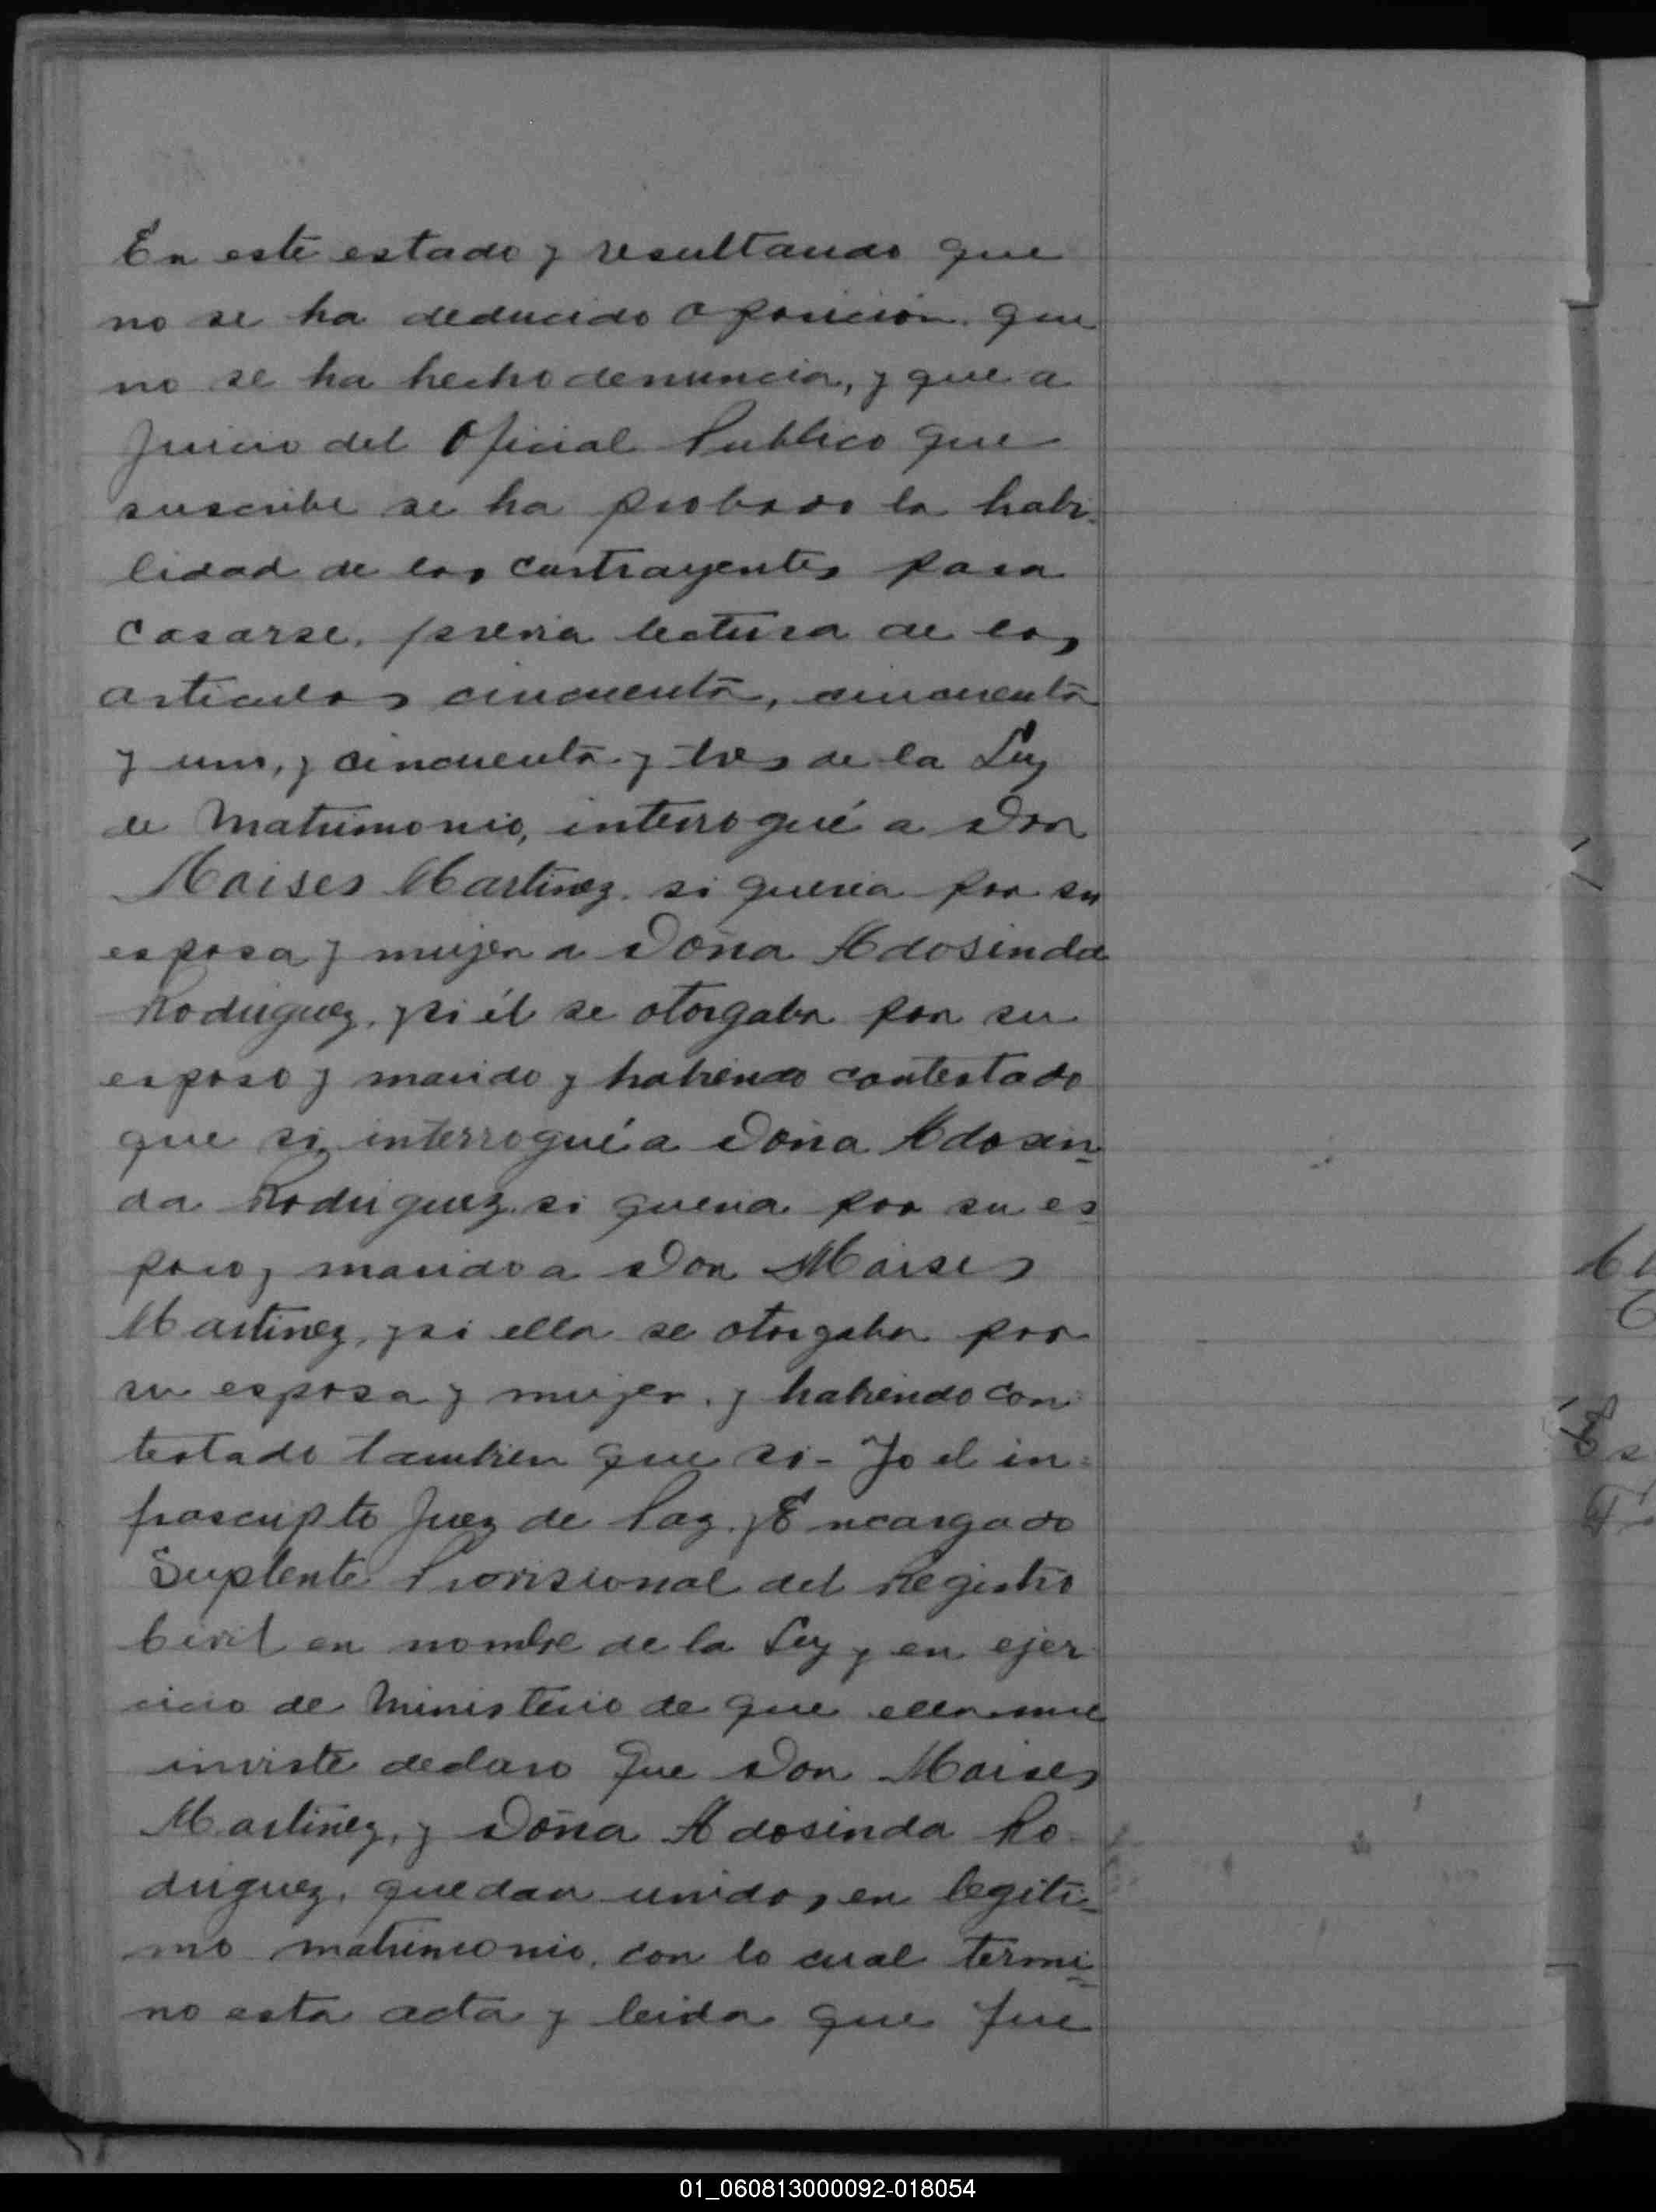 En este estado y resultando que
no se ha deducido oposicion. que
no se ha hecho denuncia, y que a
Juicio del Oficial Publico que
suscribe se ha probado la habi-
lidad de los contrayentes para
casarse, previa lectura de los
articulos cincuenta, cincuenta
y uno, y cincuenta y tres de la Ley
de Matrimonio, interrogué a Don
Moises Martinez. si queria por su
esposa y mujer a Doña Adosinda
Rodriguez. y si él se otorgaba por su
esposo y marido y habiendo contestado
que si, interrogué a Doña Adosin-
da Rodriguez si queria por su es-
poso y marido a Don Moises
Martinez, y si ella se otorgaba por
su esposa y mujer. y habiendo con-
testado tambien que si - Yo el in-
frascripto Juez de Paz. y Encargado
Suplente Provisional del Registro
Civil en nombre de la Ley y en ejer
cicio de Ministerio de que ella me
inviste declaro que Don Moises
Martinez, y Doña Adosinda Ro-
driguez, quedan unidos en legiti-
mo matrimonio. con lo cual termi-
no esta acta y leida que fue
01_060813000092-018054